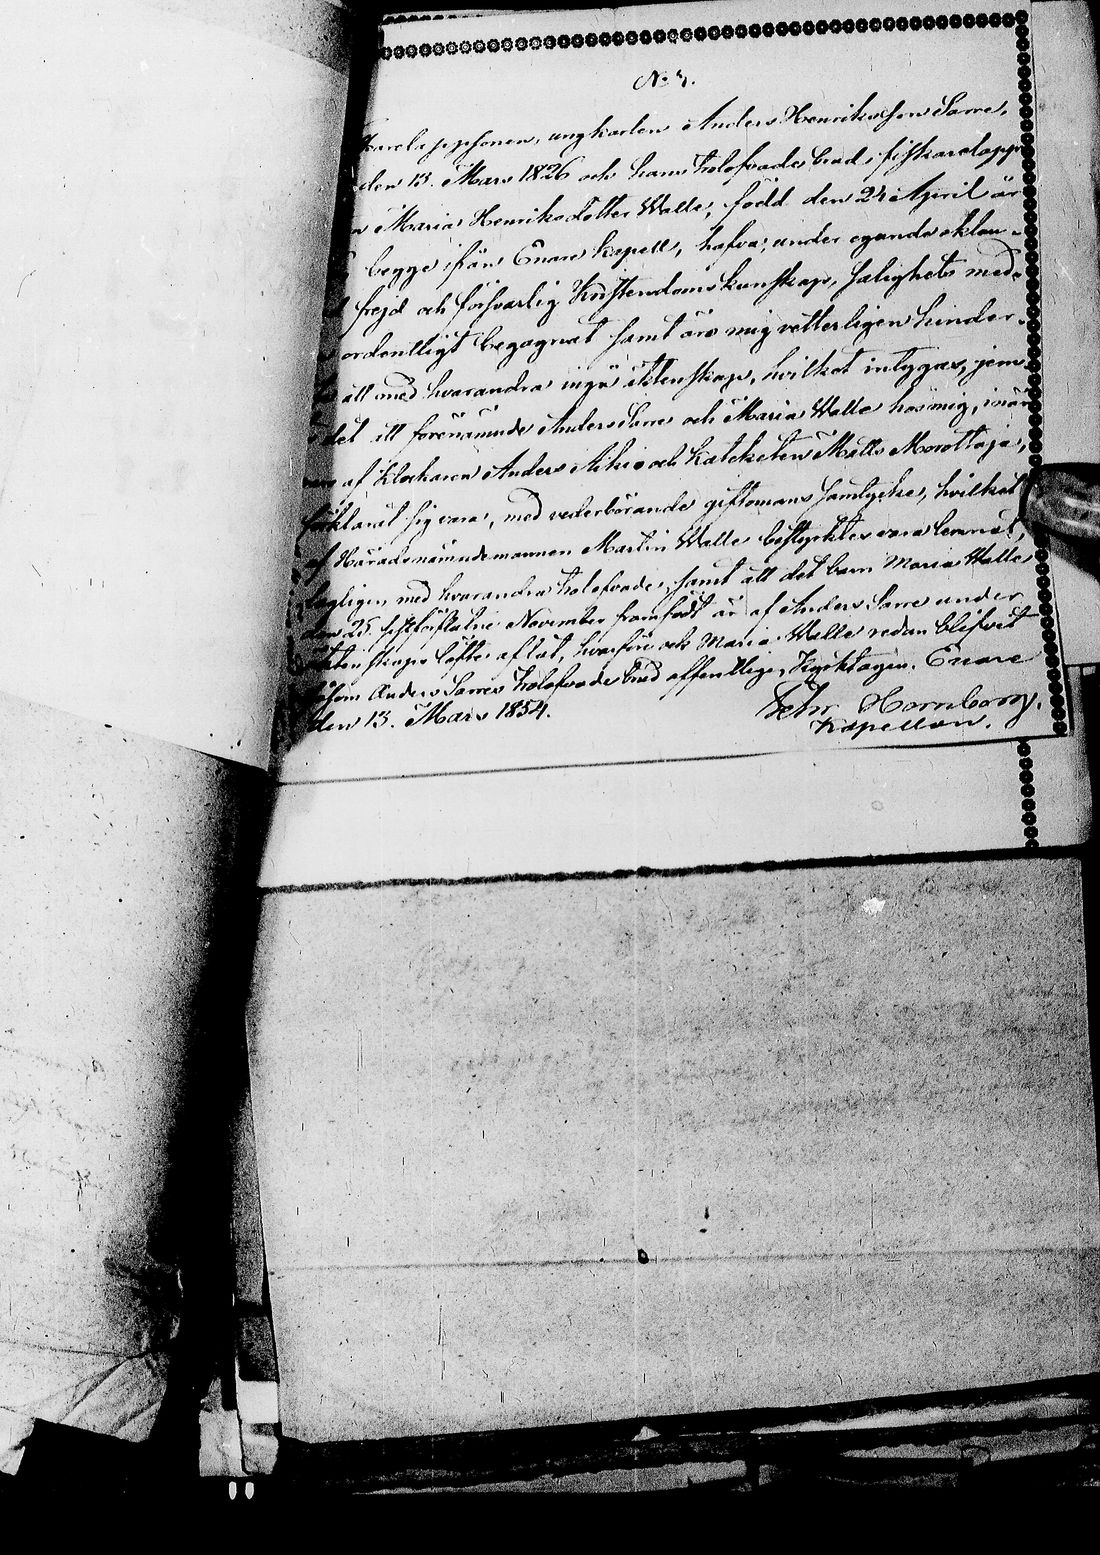 N:o 7.
ungkarlen Anders Henriksson Sarre,
den 13. Mars 1826 och hans trolofvade brud, fiskarelapp
Maria Henriksdotter Walle, född den 24 April år
begge ifrån Enare Kapell, hafva, under egande oklan-
frejd och försvarlig Kristendomskunskap, salighets med-
ordentligt begagnat samt äro mig vetterligen hinder-
att med hvarandra ingå äktenskap, hvilket intygas, jem-
det att förenämnde Anders Sarre och Maria Walle hos mig, i när
af Klockaren Anders Aikio och Katcheten Matts Morottaja,
förklarat sig vara, med vederbörande giftomans samtycke, hvilket
af Häradsnämndemannen Martin Walle bestyrktes vara lemnat,
lagligen med hvarandra trolofvade, samt att det barn Maria Walle
den 25. sistförflutne November framfödt är af Anders Sarre under
äktenskaps löfte aflat, hvarföre ock Maria Walle redan blifvit
såsom Anders Sarres trolofvade brud offentligen Kyrktagen. Enare
den 13. Mars 1854.
Hornborg.
Kapellan.